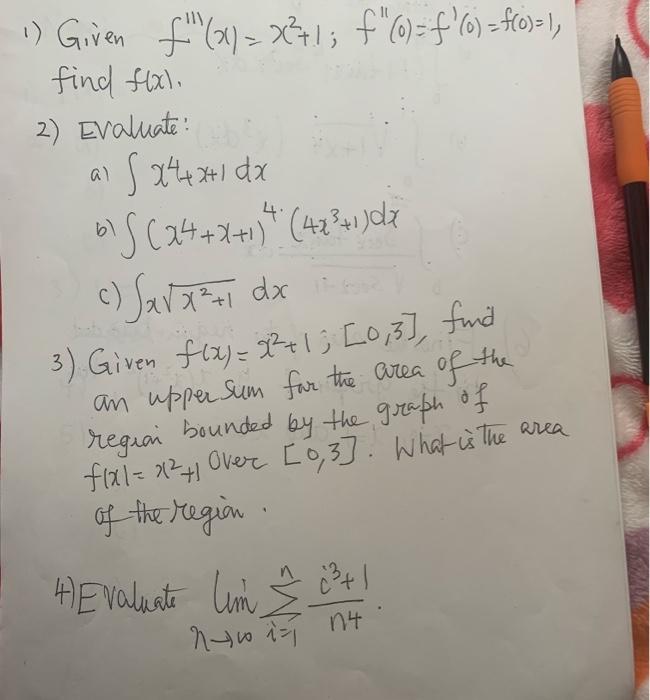 1) Given f'''(x) = x²+1; f''(0)=f'(0)=f(0)=1,
find f(x).
2) Evaluate:
a) ∫ x⁴+x+1 dx
b) ∫ (x⁴+x+1)⁴· (4x³+1)dx
c) ∫x√(x²+1) dx
3) Given f(x) = x²+1 ; [0,3], find
an upper sum for the area of the
region bounded by the graph of
f(x) = x²+1 over [0,3]. What is the area
of the region.
4) Evaluate lim n→∞ ∑ i=1 n (i³+1)/n4.